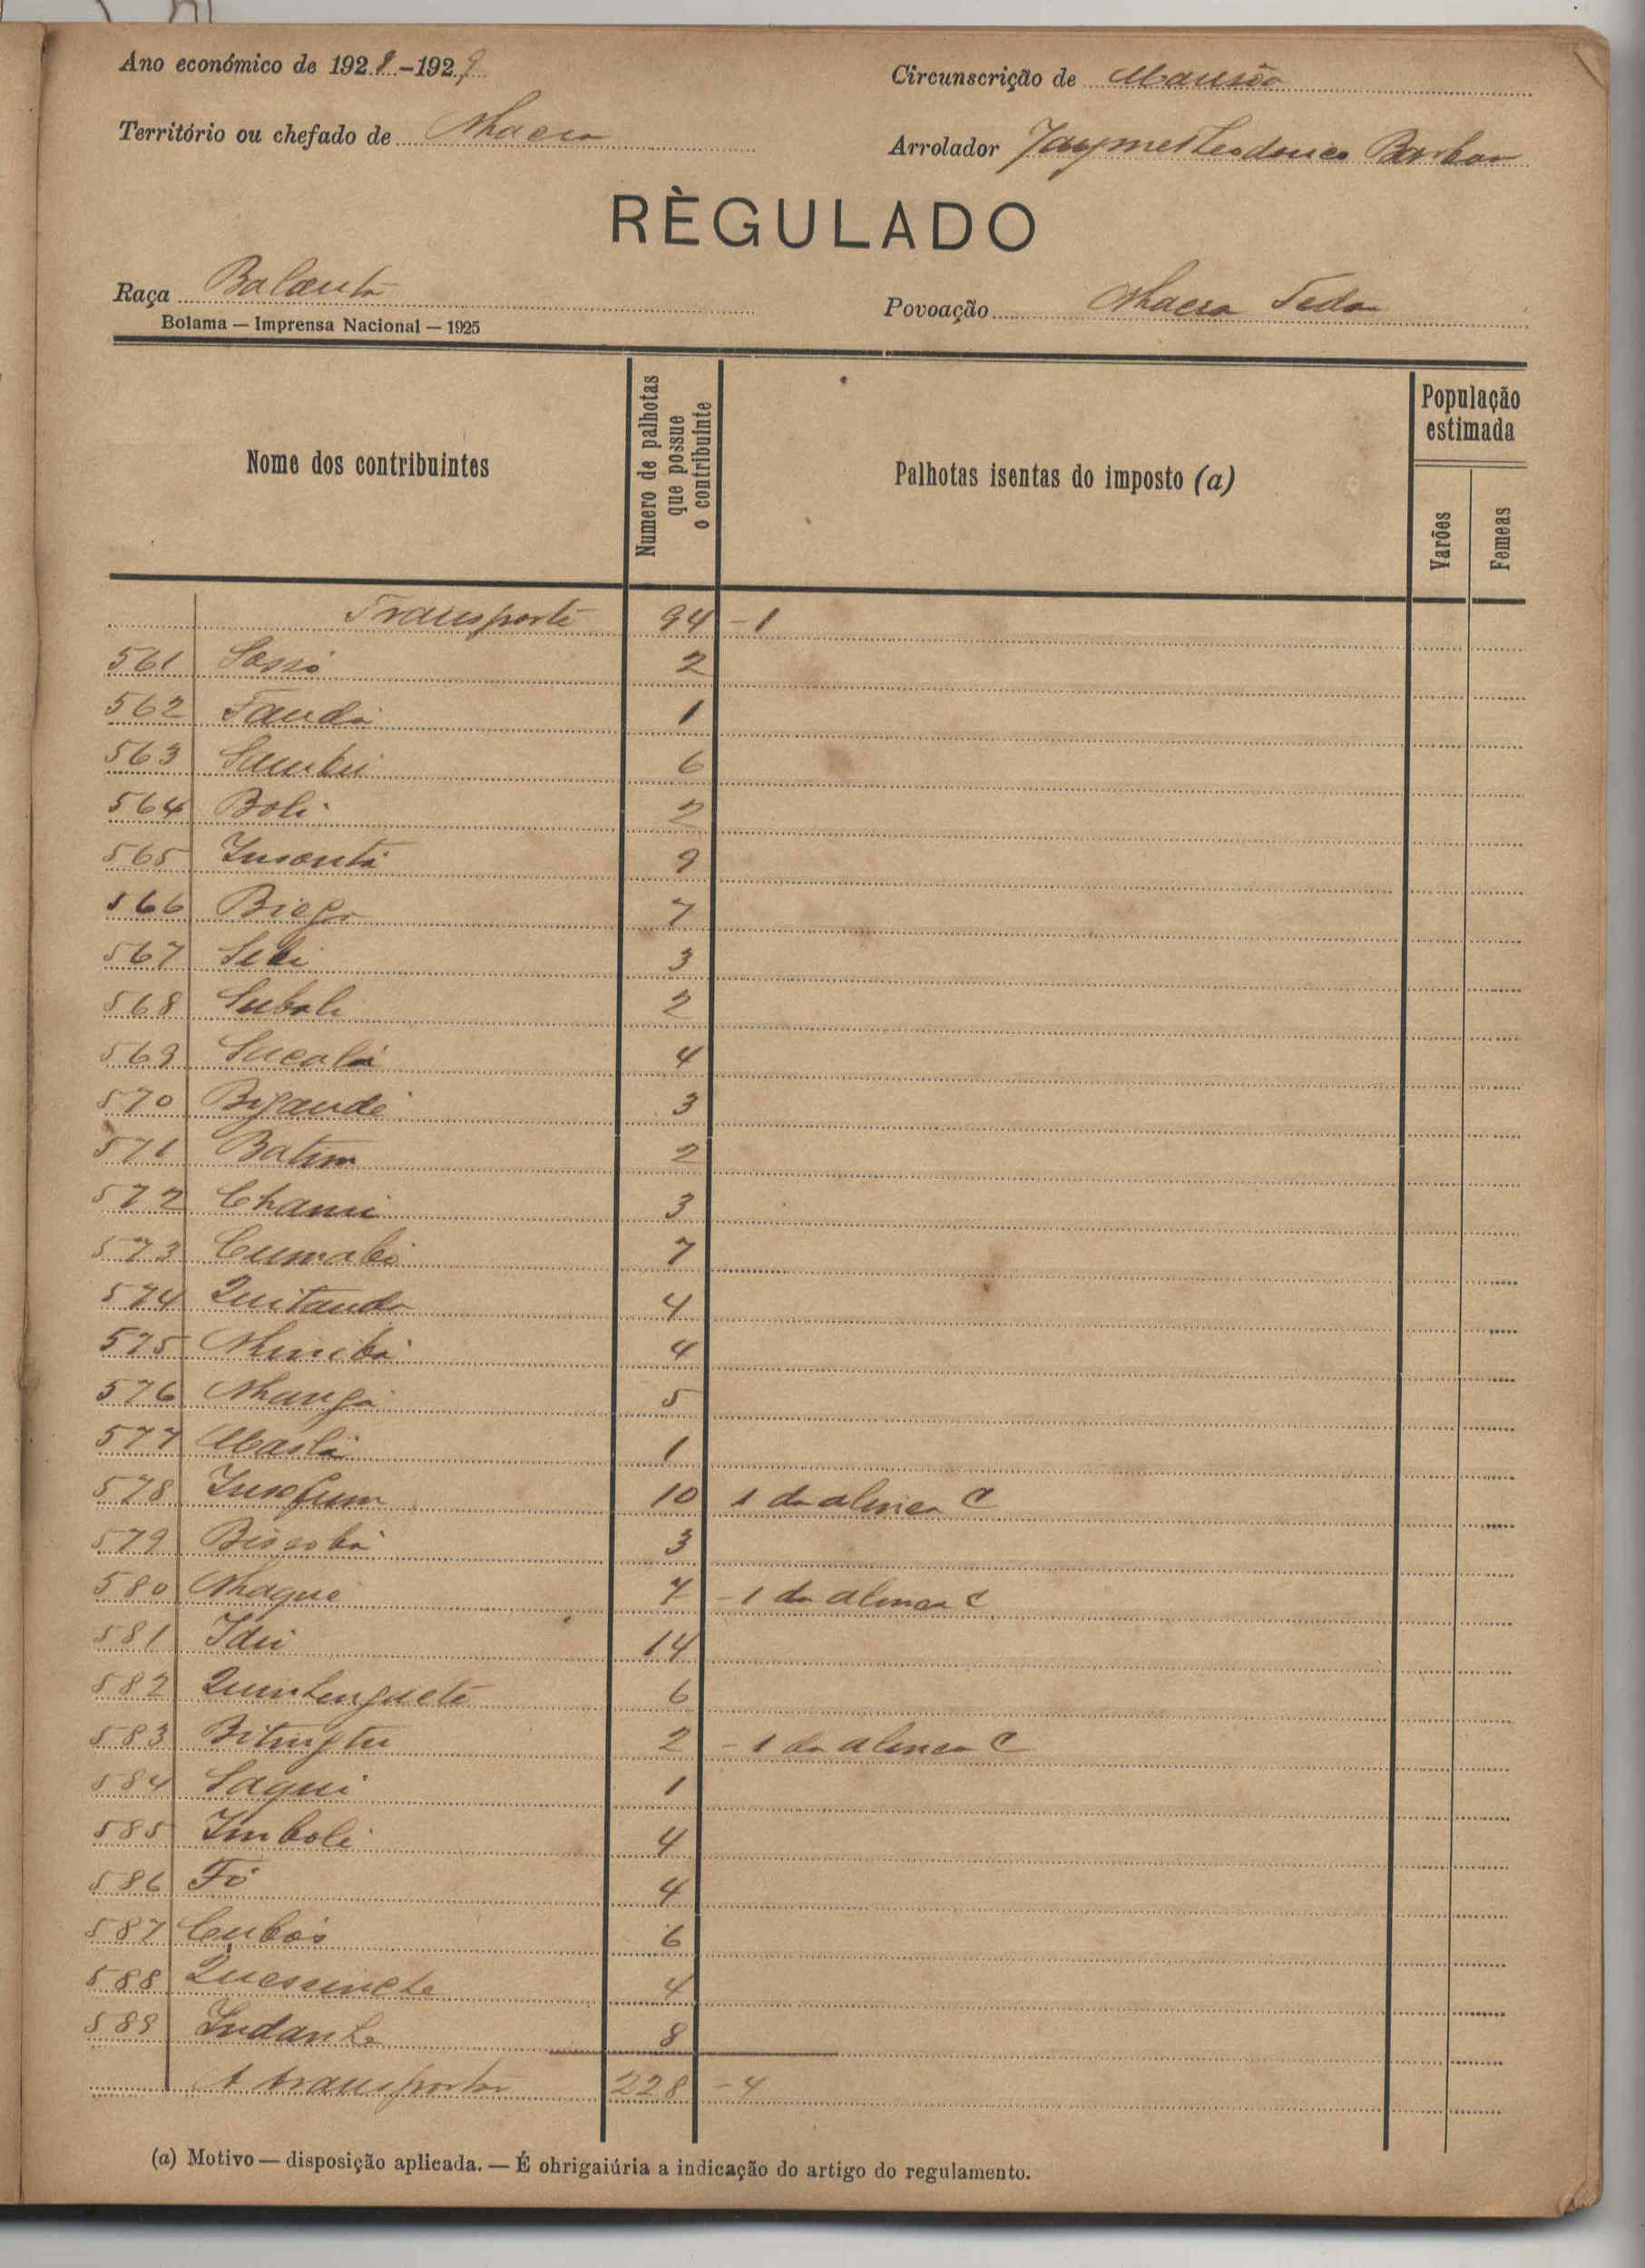 Ano económico de 1928-1929
Circunscrição de Mansôa
Território ou chefado de Nhacra
Arrolador Jayme Barbosa
RÈGULADO
Raça Balanta
Povoação Nhacra Teda
Bolama — Imprensa Nacional — 1925
Nome dos contribuintes
Numero de palhotas que possue o contribuinte
Palhotas isentas do imposto (a)
População estimada
Varões
Femeas
Transporte 94 - 1
561 Sassó 2
562 Tanda 1
563 6
564 Boli 2
565 9
566 7
567 3
568 Suboli 2
569 Sucalá 4
570 Bigande 3
571 Batim 2
572 Chami 3
573 Cumabó 7
574 Quitanda 4
575 4
576 Nhanga 5
577 1
578 10 1 da alinea C
579 3
580 Nhaque 7 - 1 da alinea C
581 Idei 14
582 6
583 2 - 1 da alinea C
584 Saqui 1
585 Imboli 4
586 Fó 4
587 6
588 4
589 8
A transportar 228 - 4
(a) Motivo — disposição aplicada. — É ohrigaiúria a indicação do artigo do regulamento.